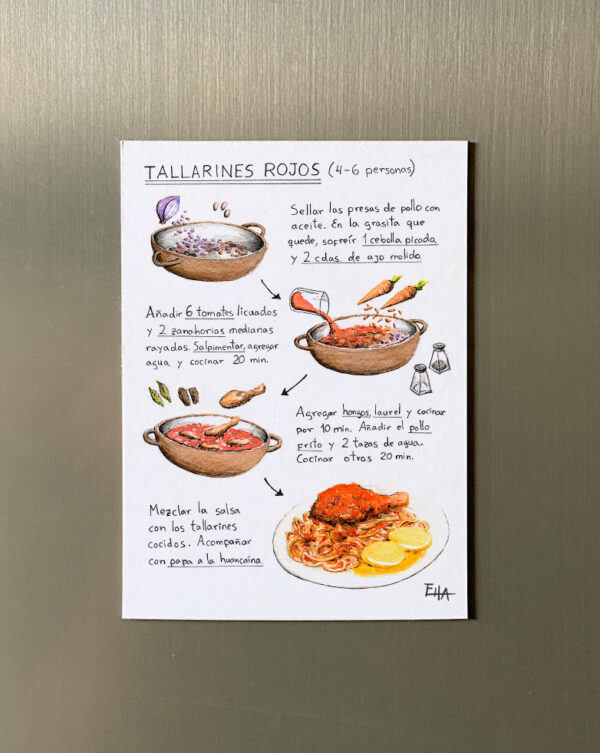 TALLARINES ROJOS (4-6 personas)
Sellar las presas de pollo con
aceite. En la grasita que
quede, sofreír 1 cebolla picada
y 2 cdas. de ajo molido
Añadir 6 tomates licuados
y 2 zanahorias medianas
rayadas. Salpimentar, agregar
agua y cocinar 20 min.
Agregar hongos, laurel y cocinar
por 10 min. Añadir el pollo
frito y 2 tazas de agua.
Cocinar otros 20 min.
Mezclar la salsa
con los tallarines
cocidos. Acompañar
con papa a la huancaína.
EHA